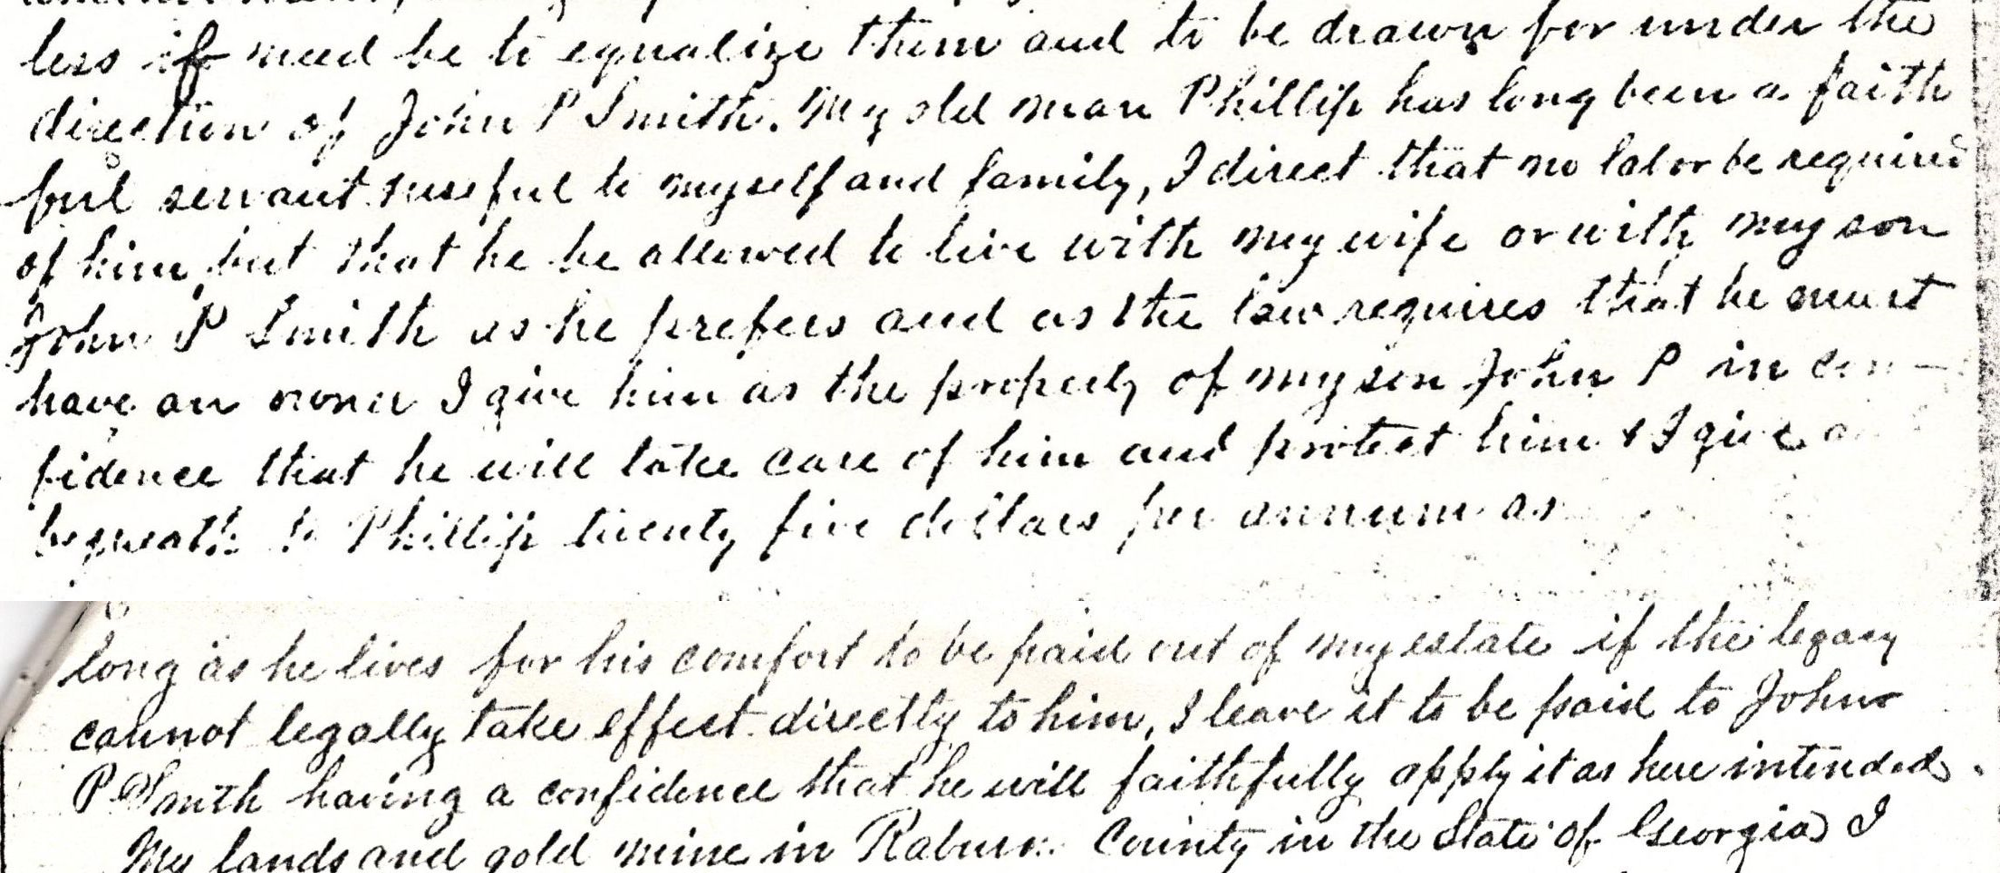 less if need be to equalize them and to be drawn for under the
direction of John P Smith. My old man Phillip has long been a faith
ful servant useful to myself and family, I direct that no labor be required
of him but that he be allowed to live with my wife or with my son
John P Smith as he prefers and as the law requires that he must
have an owner I give him as the property of my son John P in con-
fidence that he will take care of him and protect him & I give
bequeath to Phillip twenty five dollars per annum as
long as he lives for his comfort to be paid out of my estate if the legacy
cannot legally take effect directly to him, I leave it to be paid to John
P Smith having a confidence that he will faithfully apply it as here intended.
My lands and gold mine in Rabun County in the State of Georgia I